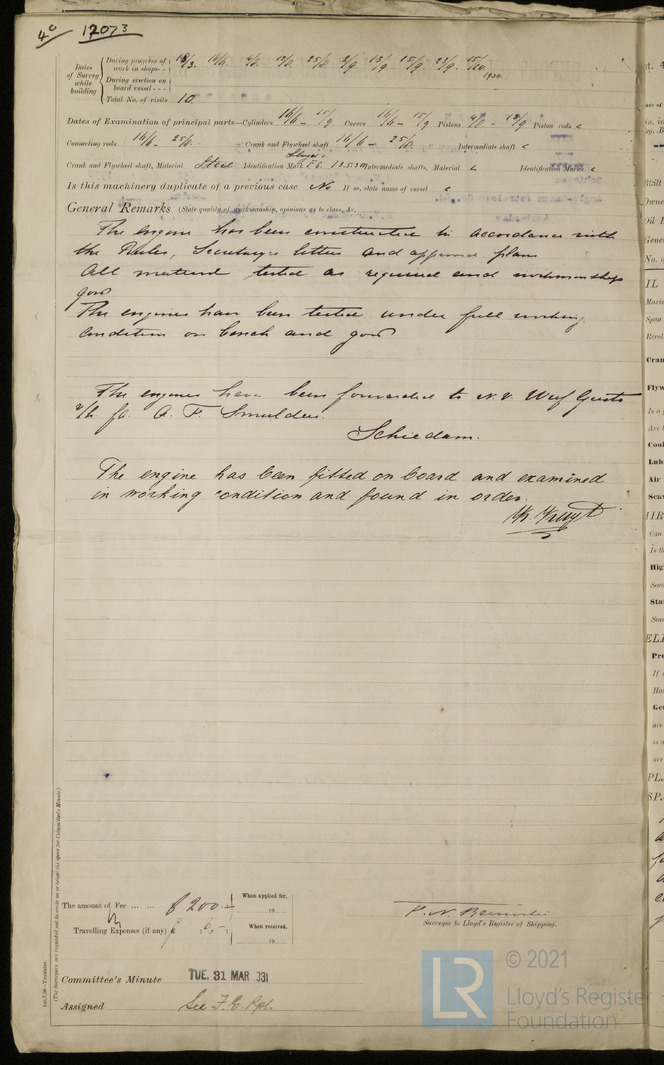 4c 12073
Dates of Survey while building
During progress of work in shops - -
1930
During erection on board vessel - - -
Total No. of visits 10.
Dates of Examination of principal parts—Cylinders 16/6 - 15/9 Covers 16/6 - 15/9 Pistons - 12/9 Piston rods
Connecting rods 16/6 - 25/8 Crank and Flywheel shaft 16/6 - 25/8 Intermediate shaft
Crank and Flywheel shaft, Material Steel Identification Mark 13.5.30 Intermediate shafts, Material Identification Marks
Is this machinery duplicate of a previous case No If so, state name of vessel
General Remarks (State quality of workmanship, opinions as to class, &c.
The engine has been constructed in accordance with
the Rules, Secretary's letters and approved plans
All material tested as required and workmanship
good
The engines have been tested under full working
condition on bench and good
The engines have been forwarded to N.V. Werf Gusto
v/h fa. A. F. Smulders.
Schiedam.
The engine has been fitted on board and examined
in working condition and found in order.
The amount of Fee ... ... £ 200 :-
When applied for,
19
Travelling Expenses (if any) £
When received,
19
Surveyor to Lloyd's Register of Shipping.
Committee's Minute TUE. 31 MAR 1931
Assigned See F.E. Rpt.
(The Surveyors are requested not to write on or below the space for Committee's Minute.)
© 2021
LR
Lloyd's Register
Foundation